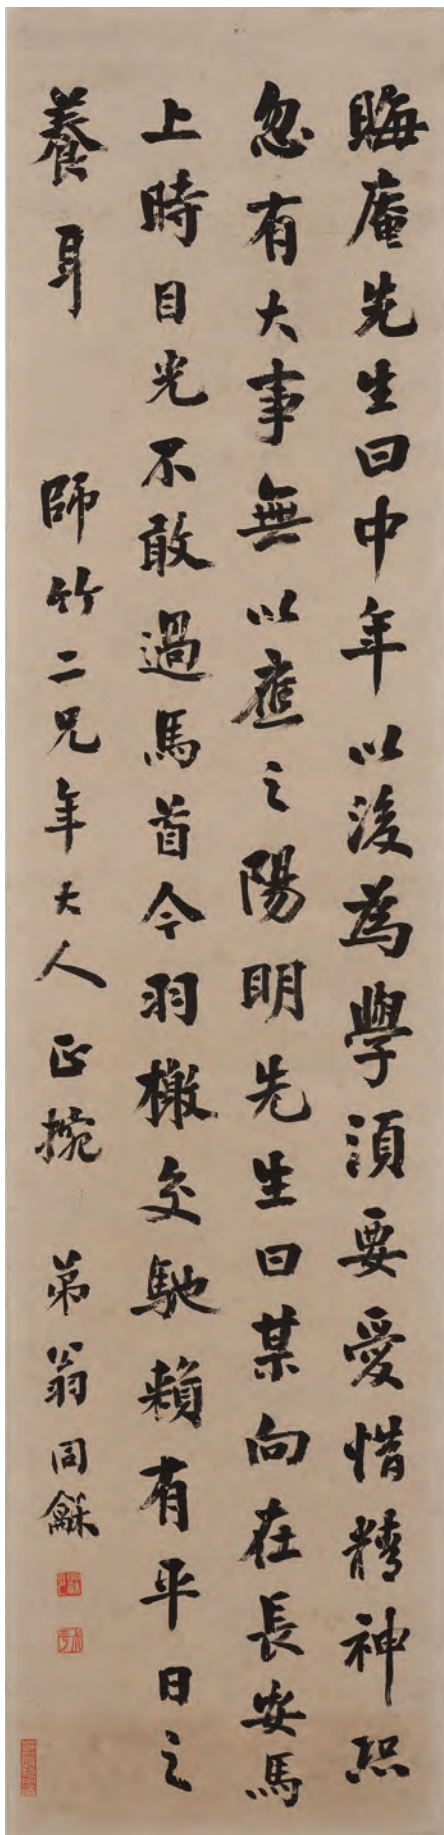 晦庵先生曰中年以後為學須要愛惜精神恐
忽有大事無以應之陽明先生曰某向在長安馬
上時目光不敢過馬首今羽檄交馳賴有平日之
養耳
師竹二兄年大人正捥 弟翁同龢